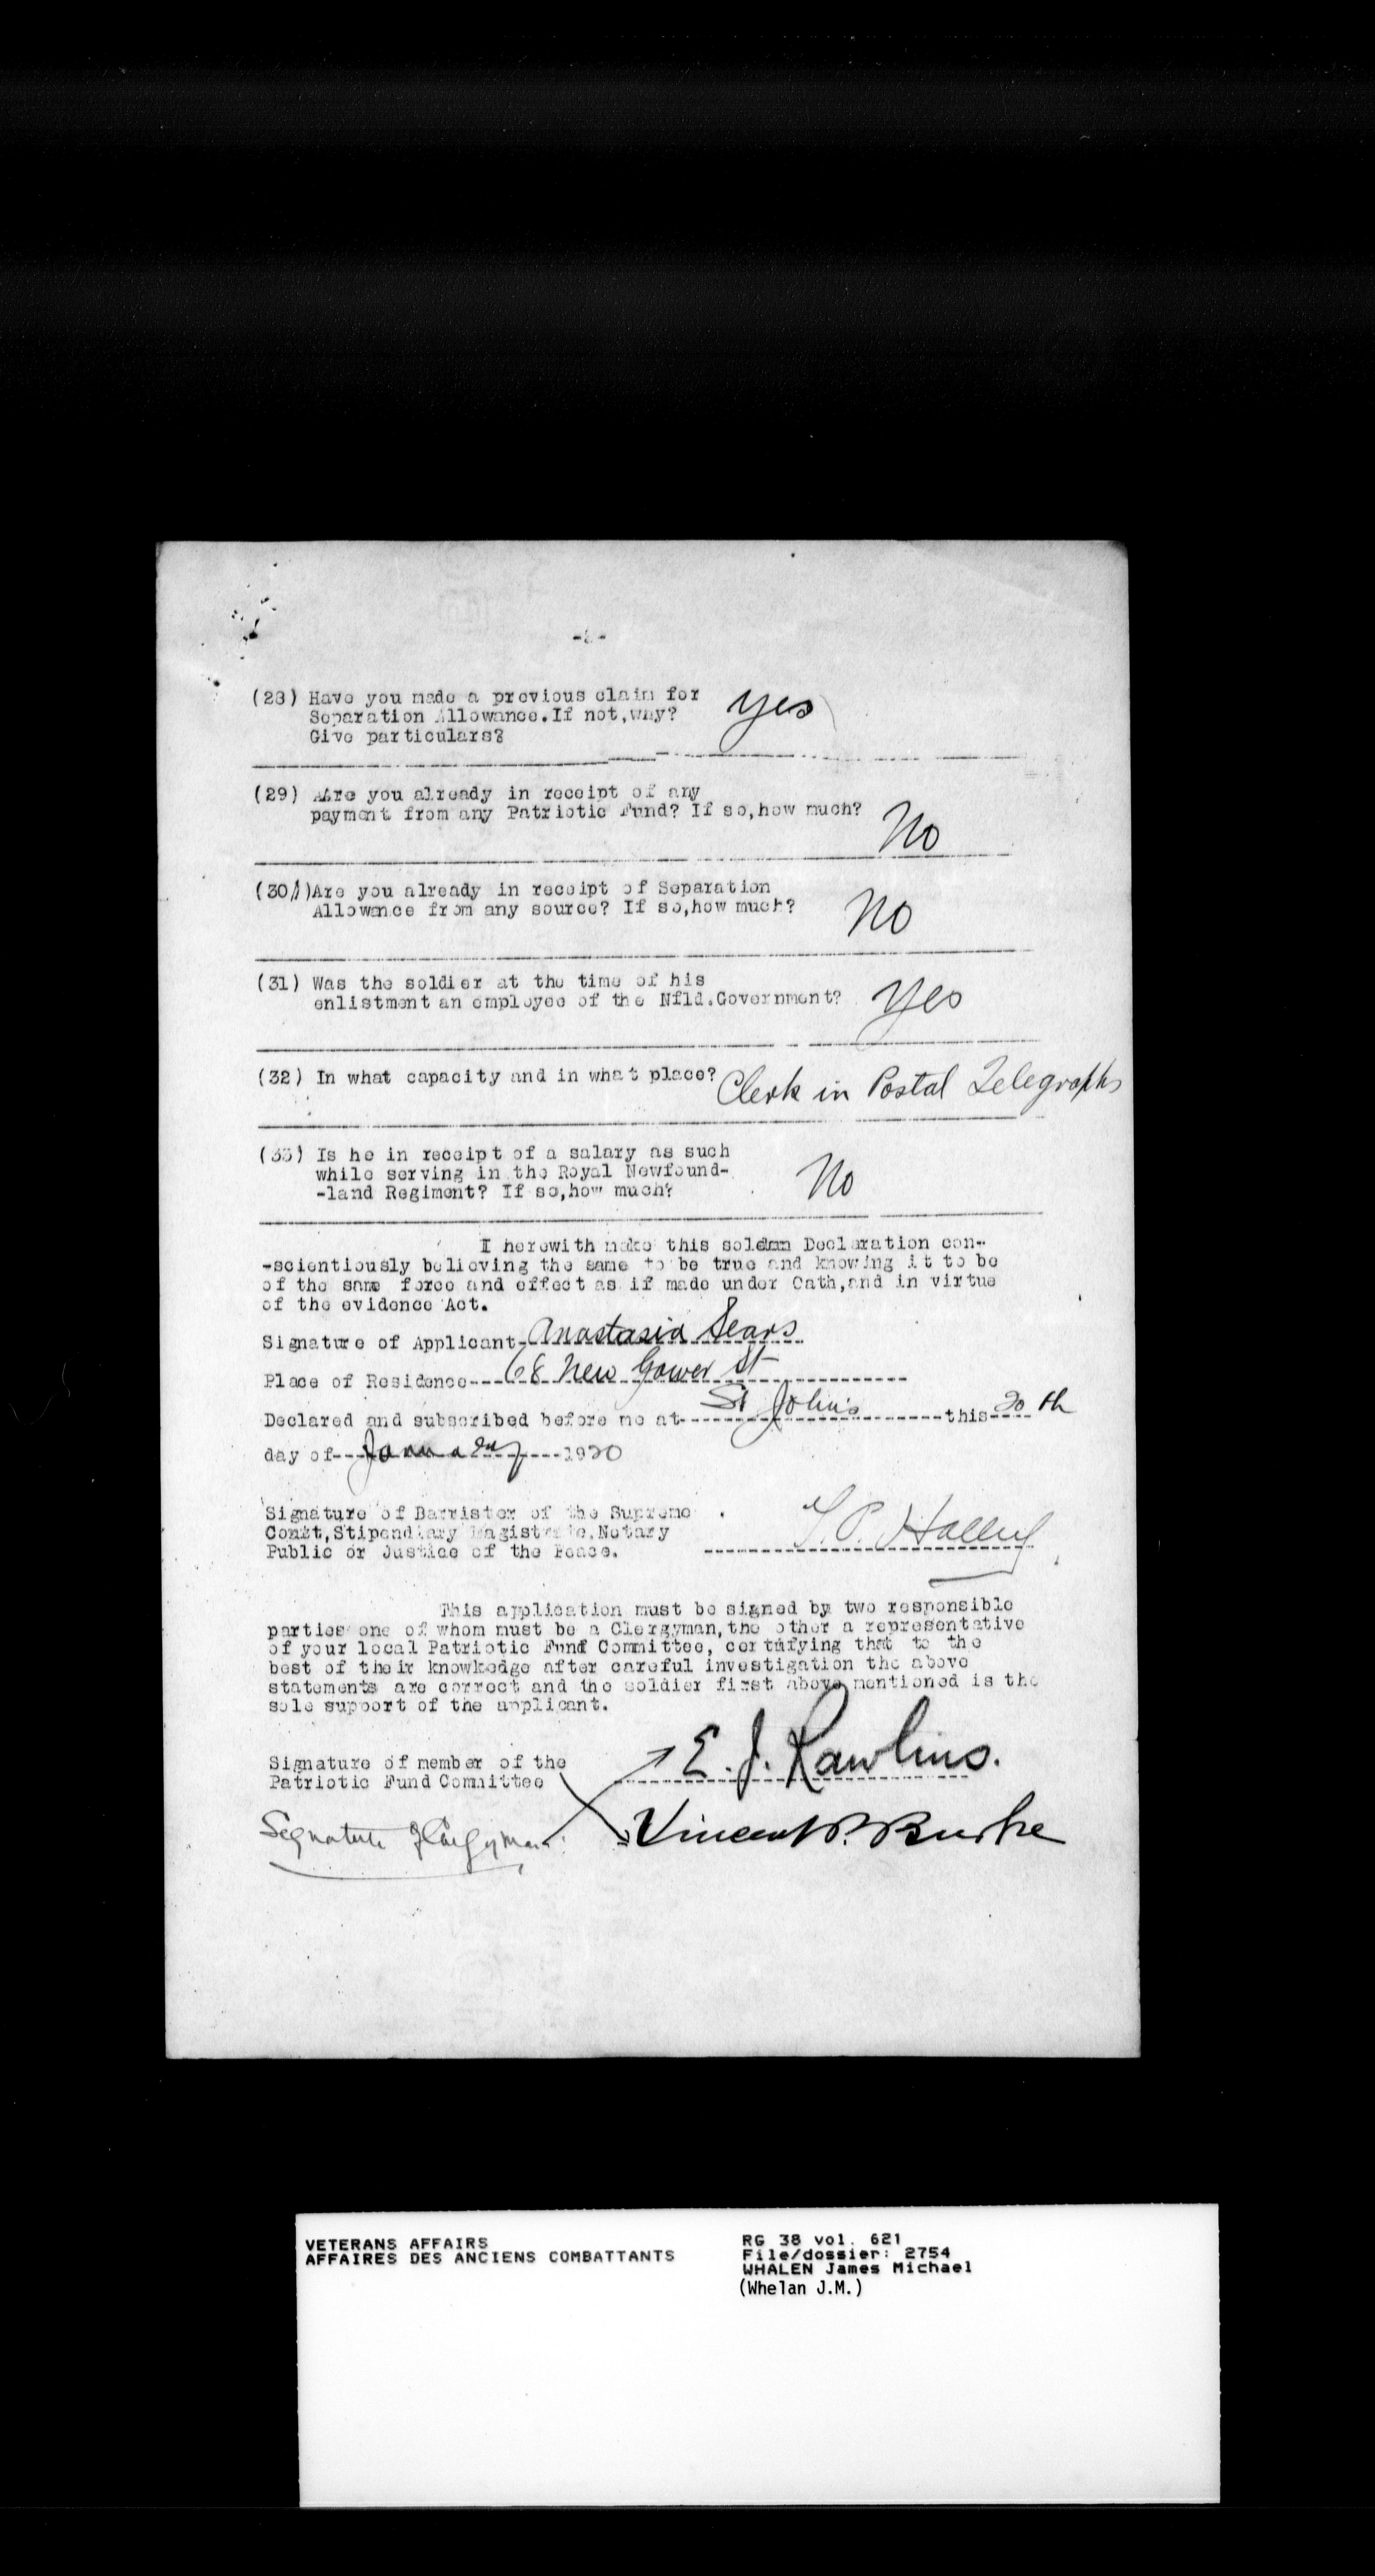 (28) Have you made a previous claim for
Separation Allowance.If not,why? yes
Give particulars?
(29) Are you already in receipt of any
payment from any Patriotic Fund? If so,how much? No
(30)Are you already in receipt of Separation
Allowance from any source? If so,how much? No
(31) Was the soldier at the time of his
enlistment an employee of the Nfld.Government? yes
(32) In what capacity and in what place? Clerk in Postal Telegraphs
(33) Is he in receipt of a salary as such
while serving in the Royal Newfound-
-land Regiment? If so,how much? No
I herewith make this solemn Declaration con-
-scientiously believing the same to be true and knowing it to be
of the same force and effect as if made under Oath,and in virtue
of the evidence Act.
Signature of Applicant- Anastasia Sears
Place of Residence--- 68 New Gower St
Declared and subscribed before me at- St John's ---this 20th
day of-- January ---1920
Signature of Barrister of the Supreme
Court,Stipendiary Magistrate,Notary
Public or Justice of the Peace.
This application must be signed by two responsible
parties one of whom must be a Clergyman,the other a representative
of your local Patriotic Fund Committee, certifying that to the
best of their knowkedge after careful investigation the above
statements are correct and the soldier first above mentioned is the
sole support of the applicant.
Signature of member of the E. J. Rawlins.
Patriotic Fund Committee
Signature of Clergyman: Vincent P. Burke
VETERANS AFFAIRS RG 38 vol. 621
AFFAIRES DES ANCIENS COMBATTANTS File/dossier: 2754
WHALEN James Michael
(Whelan J.M.)